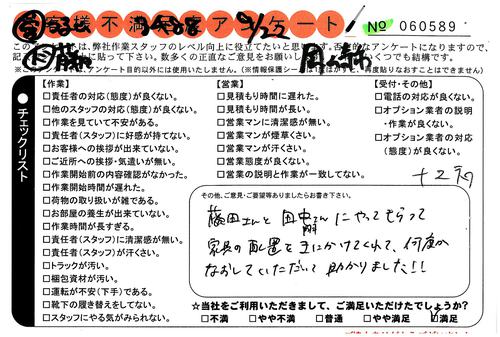 お客様不満足度アンケート
9/23
No 060589
このアンケートは、弊社作業スタッフのレベル向上に役立てたいと思います。否定的なアンケートになりますので、
※このアンケートは、アンケート目的以外には使用いたしません。(※情報保護シール
再度貼りなおすことはできません
チェックリスト
【作業】
□責任者の対応(態度)が良くない。
□他のスタッフの対応(態度)が良くない。
□作業を見ていて不安がある。
□責任者(スタッフ)に好感が持てない。
□お客様への挨拶が出来ていない。
□ご近所への挨拶・気遣いが無い。
□作業開始前の内容確認がなかった。
□作業開始時間が遅れた。
□荷物の取り扱いが雑である。
□お部屋の養生が出来ていない。
□作業時間が長すぎる。
□責任者(スタッフ)に清潔感が無い。
□責任者(スタッフ)が汗くさい。
□トラックが汚い。
□梱包資材が汚い。
□運転が不安(下手)である。
□靴下の履き替えをしてない。
□スタッフにやる気がみられない。
【営業】
□見積もり時間に遅れた。
□見積もり時間が長い。
□営業マンに清潔感が無い。
□営業マンが煙草くさい。
□営業マンが汗くさい。
□営業態度が良くない。
□営業の説明と作業が一致してない。
【受付・その他】
□電話の対応が良くない。
□オプション業者の説明
・作業が良くない。
□オプション業者の対応
(態度)が良くない。
その他、ご意見・ご要望等ありましたらお書き下さい。
藤田さんと田中さんにやってもらって
家具の配置を気にかけてくれて、何度か
なおしていただいて助かりました!!
☆当社をご利用いただきまして、ご満足いただけたでしょうか?
□不満 □やや不満 □普通 □やや満足 ☑満足